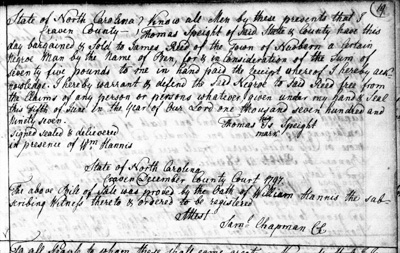 19
State of North Carolina } Know all Men by these presents that I
Craven County } Thomas Speight of Said State & County have this
day bargained & Sold to James Reed of the Town of Newbern a Certain
Negroe Man by the Name of Pen, for & in Consideration of the Sum of
Seventy five pounds to me in hand paid the receipt whereof I hereby ack
nowledge. I hereby warrant & defend the Said Negroe to Said Reed free from
the Claims of any person or persons whatever given under my hand & Seal
this fifth of June In the Year of Our Lord One thousand Seven hundred and
Ninety Seven.
Thomas Speight
mark
Signed Sealed & delivered
in presence of Wm Hannis
State of North Carolina
Craven December County Court 1797
The above Bill of Sale was proved by the Oath of William Hannis the sub
scribing Witness thereto & ordered to be registered
Attest
Saml. Chapman CC
To all People to whom these shall come